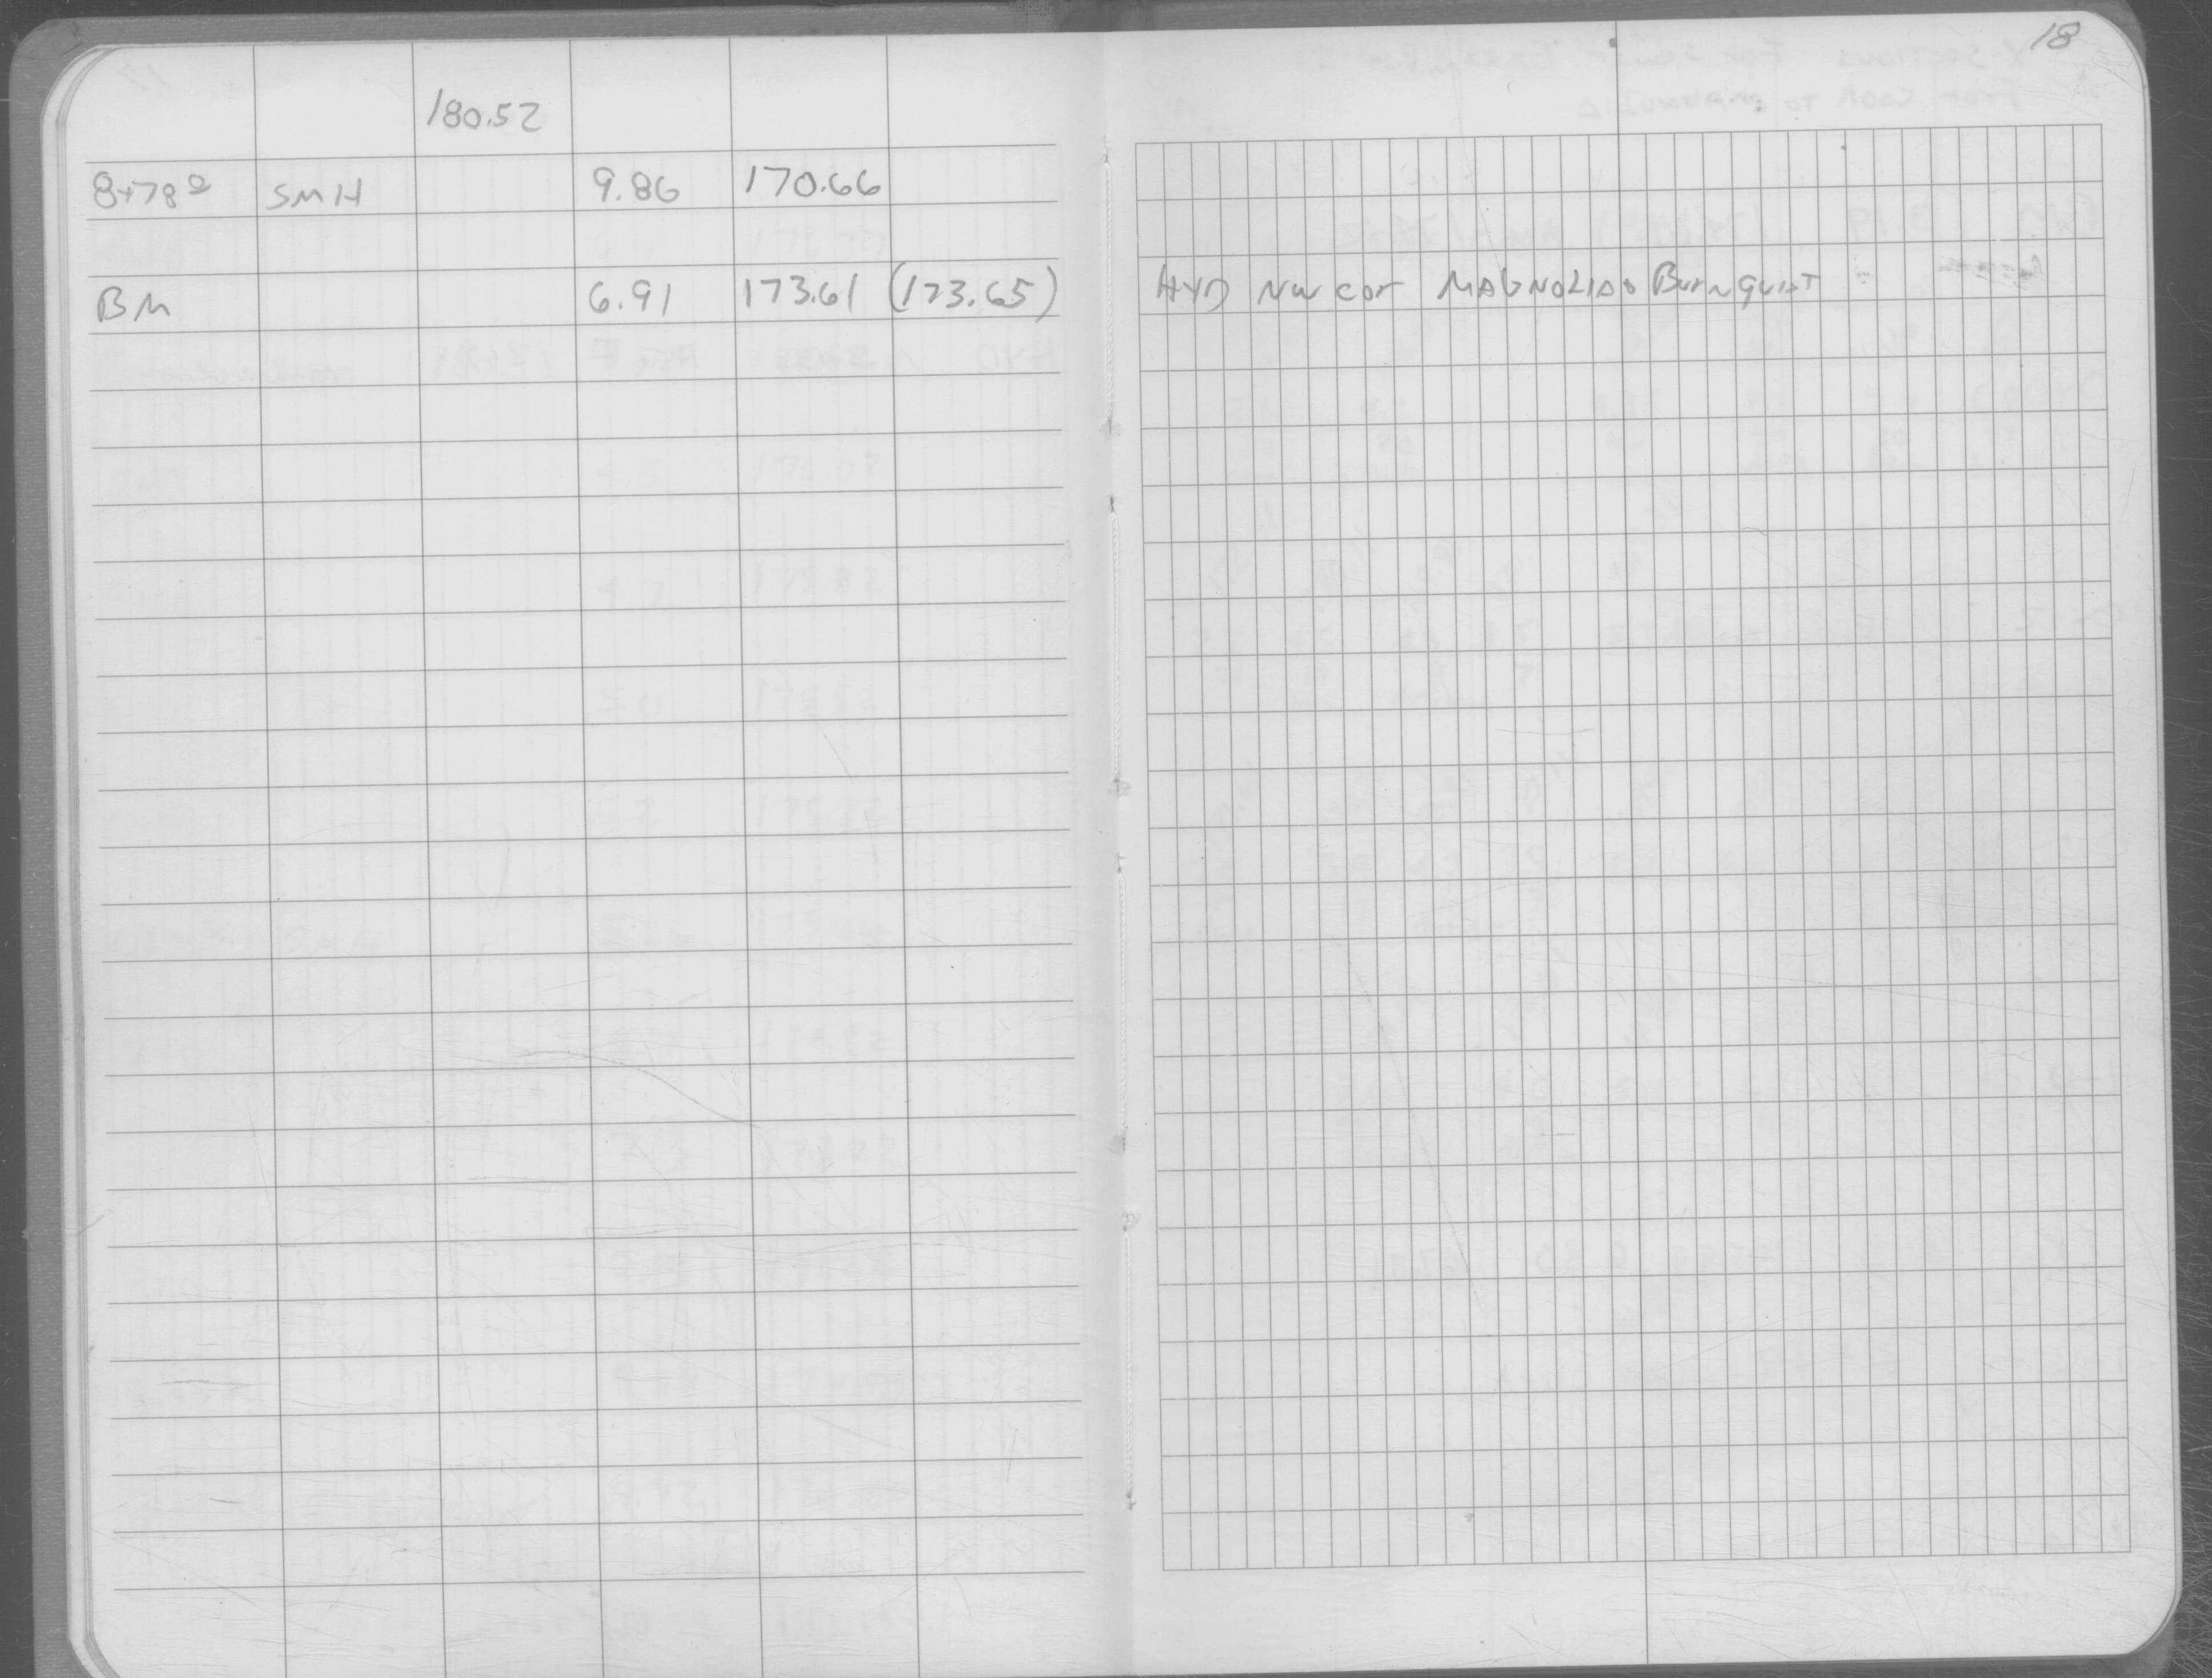 18
180.52
8+78⁰ SMH 9.86 170.66
BM 6.91 173.61 (173.65) HYD NW cor MAGNOLIA & Burnquist